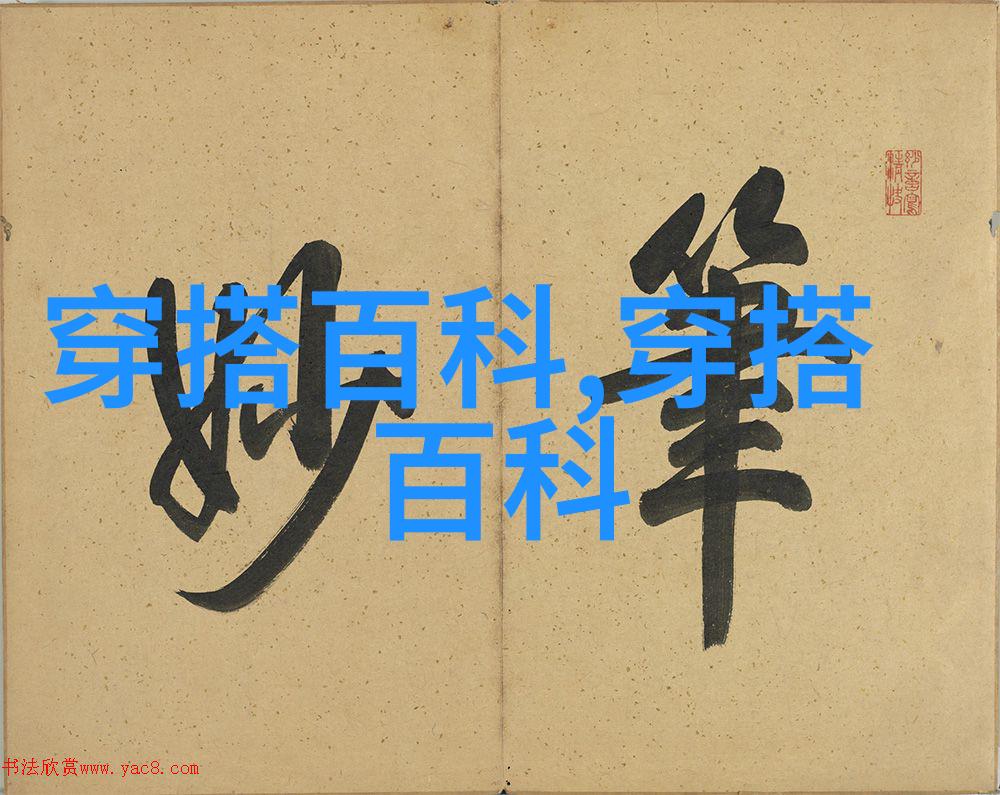 穿搭百科,穿搭
百科
筆
妙
书法欣赏www.yac8.com